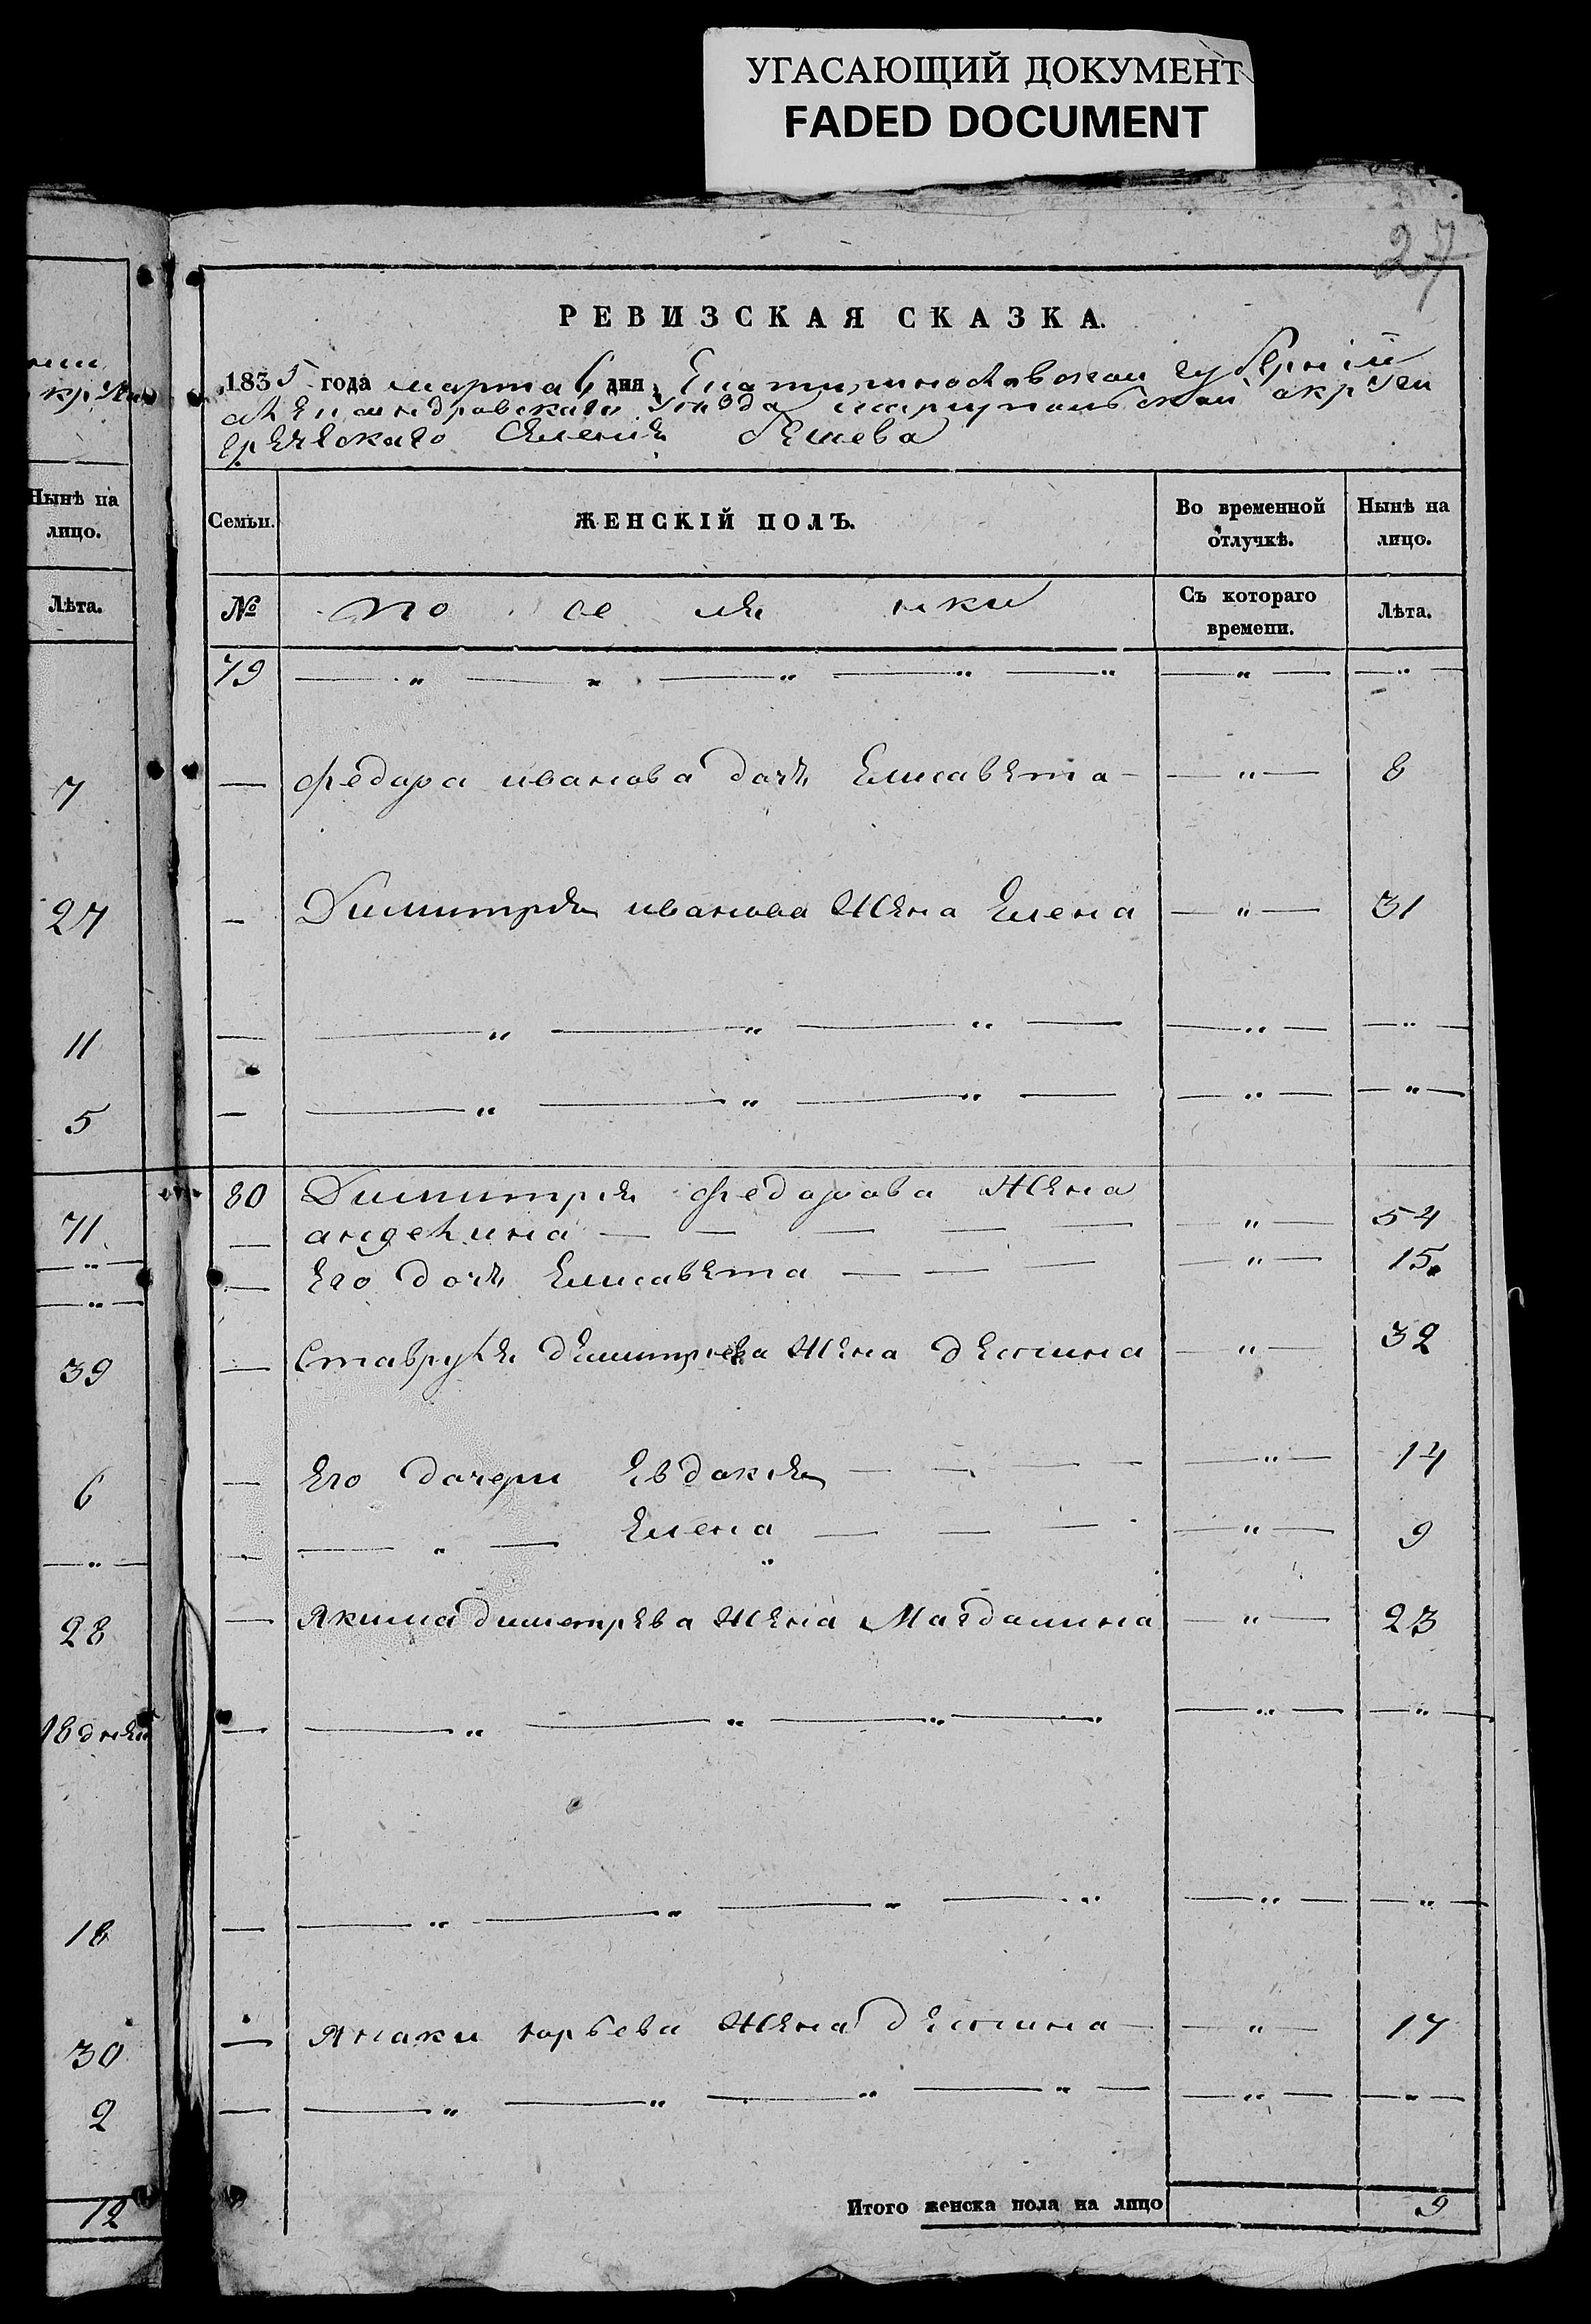 УГАСАЮЩИЙ ДОКУМЕНТ
FADED DOCUMENT
27
РЕВИЗСКАЯ СКАЗКА.
1835 года марта 6 дня, Екатиринославской губерніи
александровскаго уезда мариупольской округи
греческаго селения бешева
Семьи. ЖЕНСКІЙ ПОЛЪ. Во временной отлучкѣ. Нынѣ на лицо.
№ поселянки Съ котораго времени. Лѣта.
79 — " — " — " — " — " — " — — " —
— федора иванова дочь Елисавета — — " — 8
— Димитрия иванова жена Елена — " — 31
— — " — " — " — — " — — " —
— — " — " — " — — " — — " —
80 Димитрия федорова жена
— анжелина — — — — — " — 54
— Его дочь Елисавета — — — — " — 15
— Ставрукия димитриева жена деспина — " — 32
— Его дочери Евдокия — — — — — " — 14
— — " — Елена — — — — " — 9
— Якима димитрева жена Магдалина — " — 23
— — " — " — " — " — " — — " —
— — " — " — " — " — " — — " —
— Янаки юрьева жена деспина — — " — 17
— — " — " — " — " — — " — — " —
Итого женска пола на лицо 9
Нынѣ на
лицо.
Лѣта.
7
27
11
5
71
— " —
— " —
39
6
— " —
28
18 дней
18
30
2
12